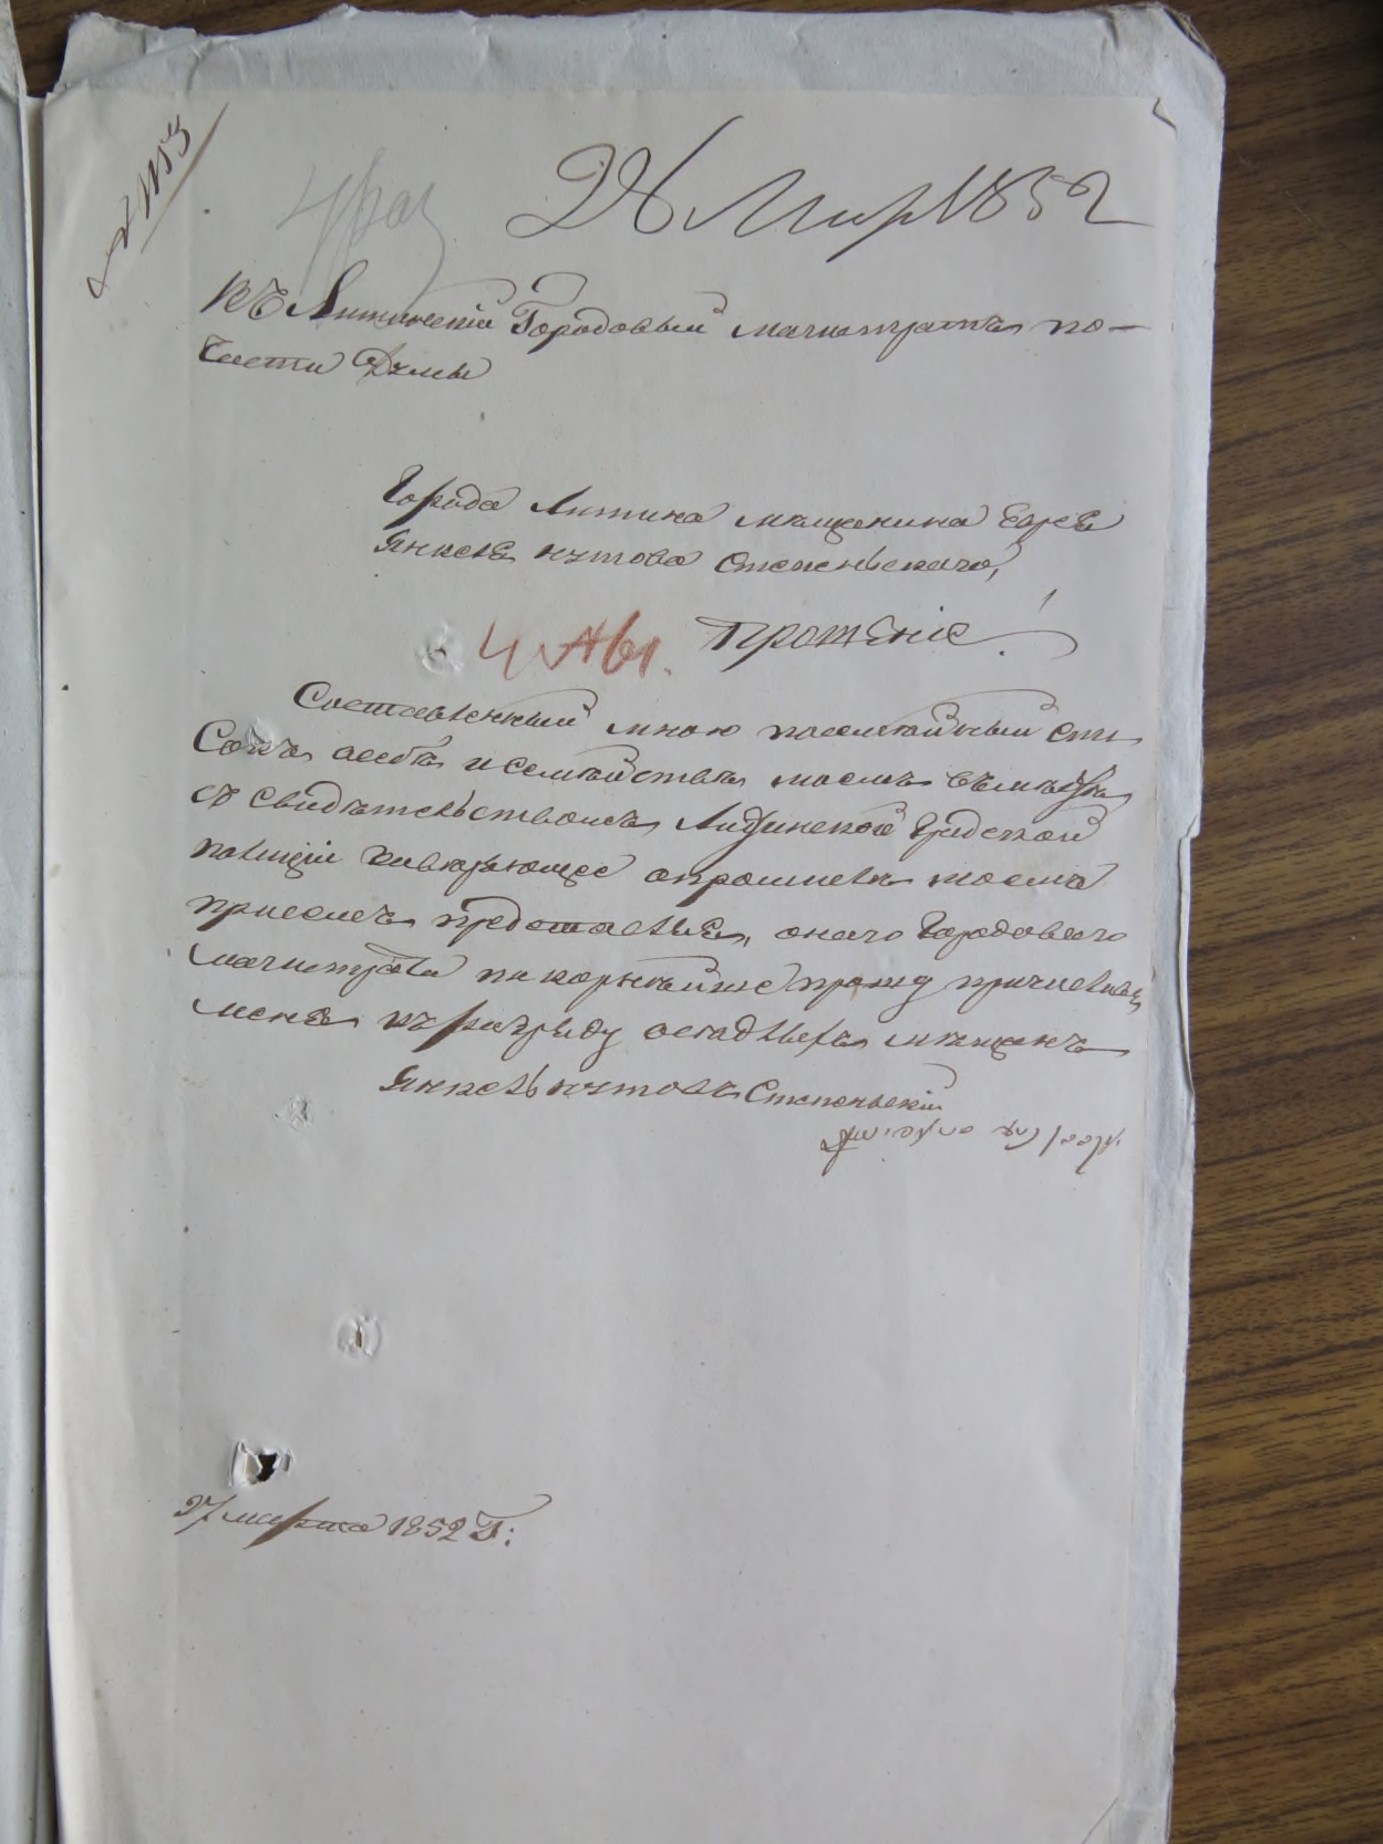 № 1115
28 Мар 1852
Въ Литинскій Городовый магистратъ по
части Думы
Города Литина мещанина Еврея
Янкеля Кутова Степенскаго,
Прошеніе!
Составленный мною посемейный спи
сокъ о себѣ и семействѣ моемъ вместѣ
съ свидѣтельствомъ Литинской Градской
полиціи о
присемъ представляя, оного Городового
магистрата покорнейше прошу причислить
меня къ разряду оседлыхъ мещанъ
Янкель Кутовъ Степенскій
27 марта 1852 г: